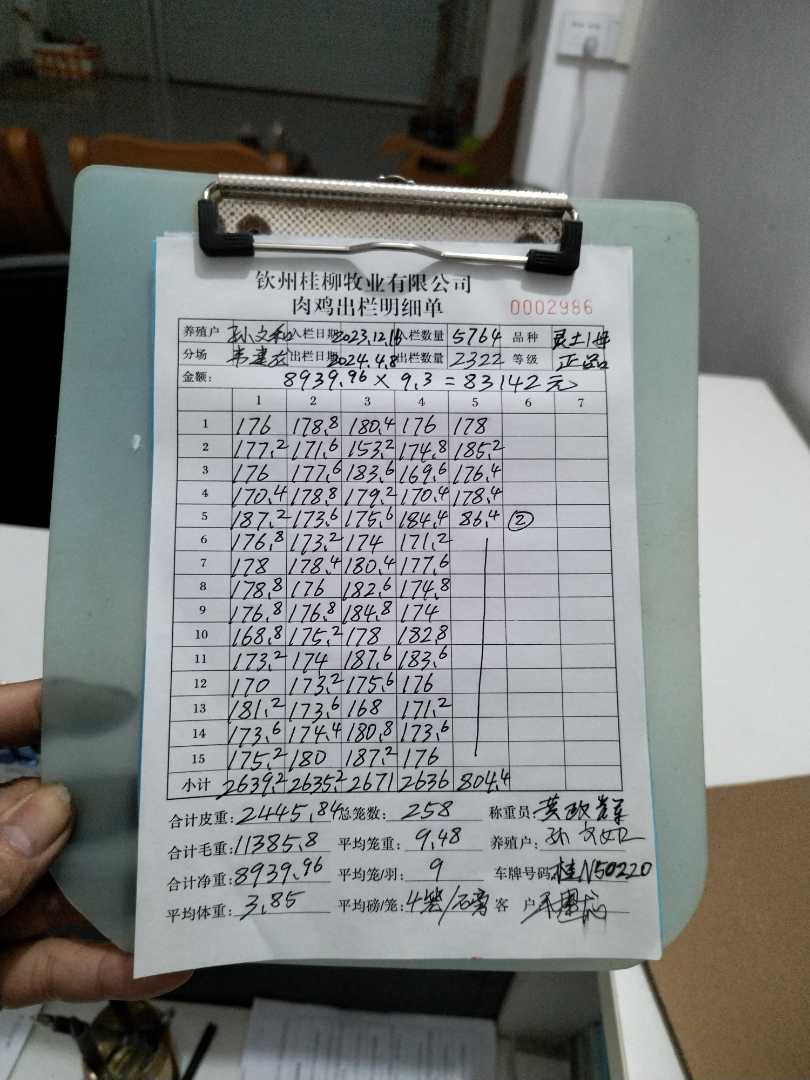 钦州桂柳牧业有限公司
肉鸡出栏明细单 0002986
养殖户 孙文和 入栏日期 2023.12.16 入栏数量 5764 品种 灵土1母
分场 出栏日期 2024.4.8 出栏数量 2322 等级 正品
金额: 8939.96 × 9.3 = 83142元
1 2 3 4 5 6 7
1 176 178.8 180.4 176 178
2 177.2 171.6 153.2 174.8 185.2
3 176 177.6 183.6 169.6 176.4
4 170.4 178.8 179.2 170.4 178.4
5 187.2 173.6 175.6 184.4 86.4 ②
6 176.8 173.2 174 171.2
7 178 178.4 180.4 177.6
8 178.8 176 182.6 174.8
9 176.8 176.8 184.8 174
10 168.8 175.2 178 182.8
11 173.2 174 187.6 183.6
12 170 173.2 175.6 176
13 181.2 173.6 168 171.2
14 173.6 174.4 180.8 173.6
15 175.2 180 187.2 176
小计 2639.2 2635.2 2671 2636 804.4
合计皮重: 2445.84 总笼数: 258 称重员:
合计毛重: 11385.8 平均笼重: 9.48 养殖户:
合计净重: 8939.96 平均笼/羽: 9 车牌号码: 桂N50220
平均体重: 3.85 平均磅/笼: 4 客 户